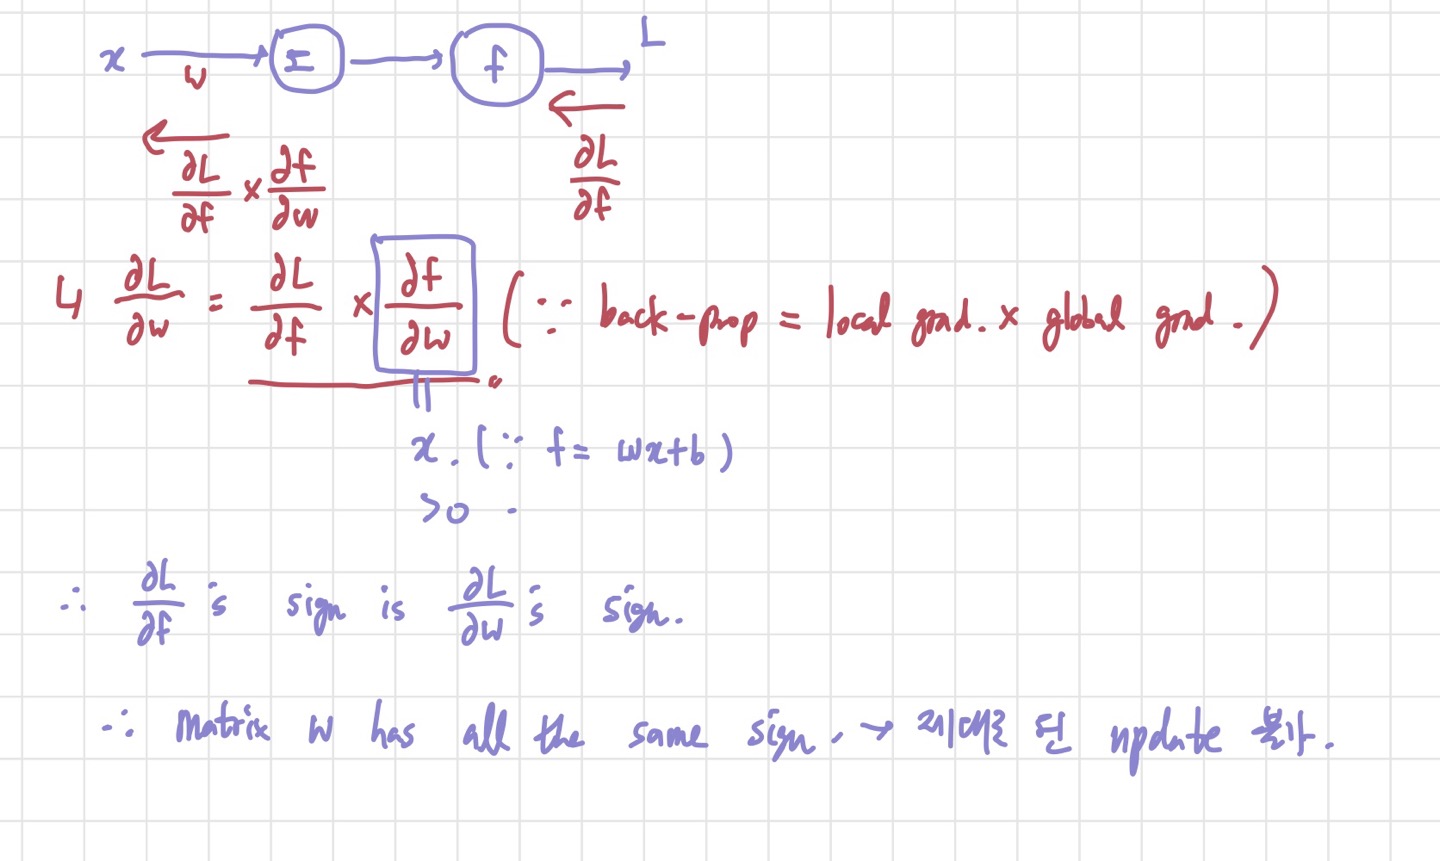 x → Σ → f → L
w
←
←
∂L/∂f × ∂f/∂w
∂L/∂f
↳ ∂L/∂w = ∂L/∂f × ∂f/∂w (∵ back-prop = local grad. × global grad.)
||
x. (∵ f = wx+b)
>0.
∴ ∂L/∂f's sign is ∂L/∂w's sign.
∴ Matrix w has all the same sign. → 제대로 된 update 불가.